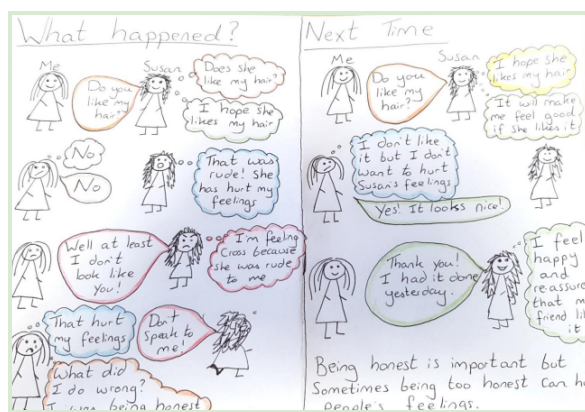 What happened?
Me
Susan
Do you
like my
hair?
Does she
like my hair?
I hope she
likes my hair
No
No
That was
rude! She
has hurt my
feelings
Well at least
I don't
look like
You!
I'm feeling
Cross because
she was rude
to me
That hurt
my feelings
Don't
Speak to
me!
What did
I do wrong?
I was being honest
Next Time
Me
Susan
Do you
like my
hair?
I hope she
likes my hair
It will make
me feel good
if she likes it
I don't like
it but I don't
want to hurt
Susan's feelings
Yes! It looks nice!
Thank you!
I had it done
yesterday.
I feel
happy
and
reassure
that m
friend li
it
Being honest is important but
Sometimes being too honest can h
people's feelings.